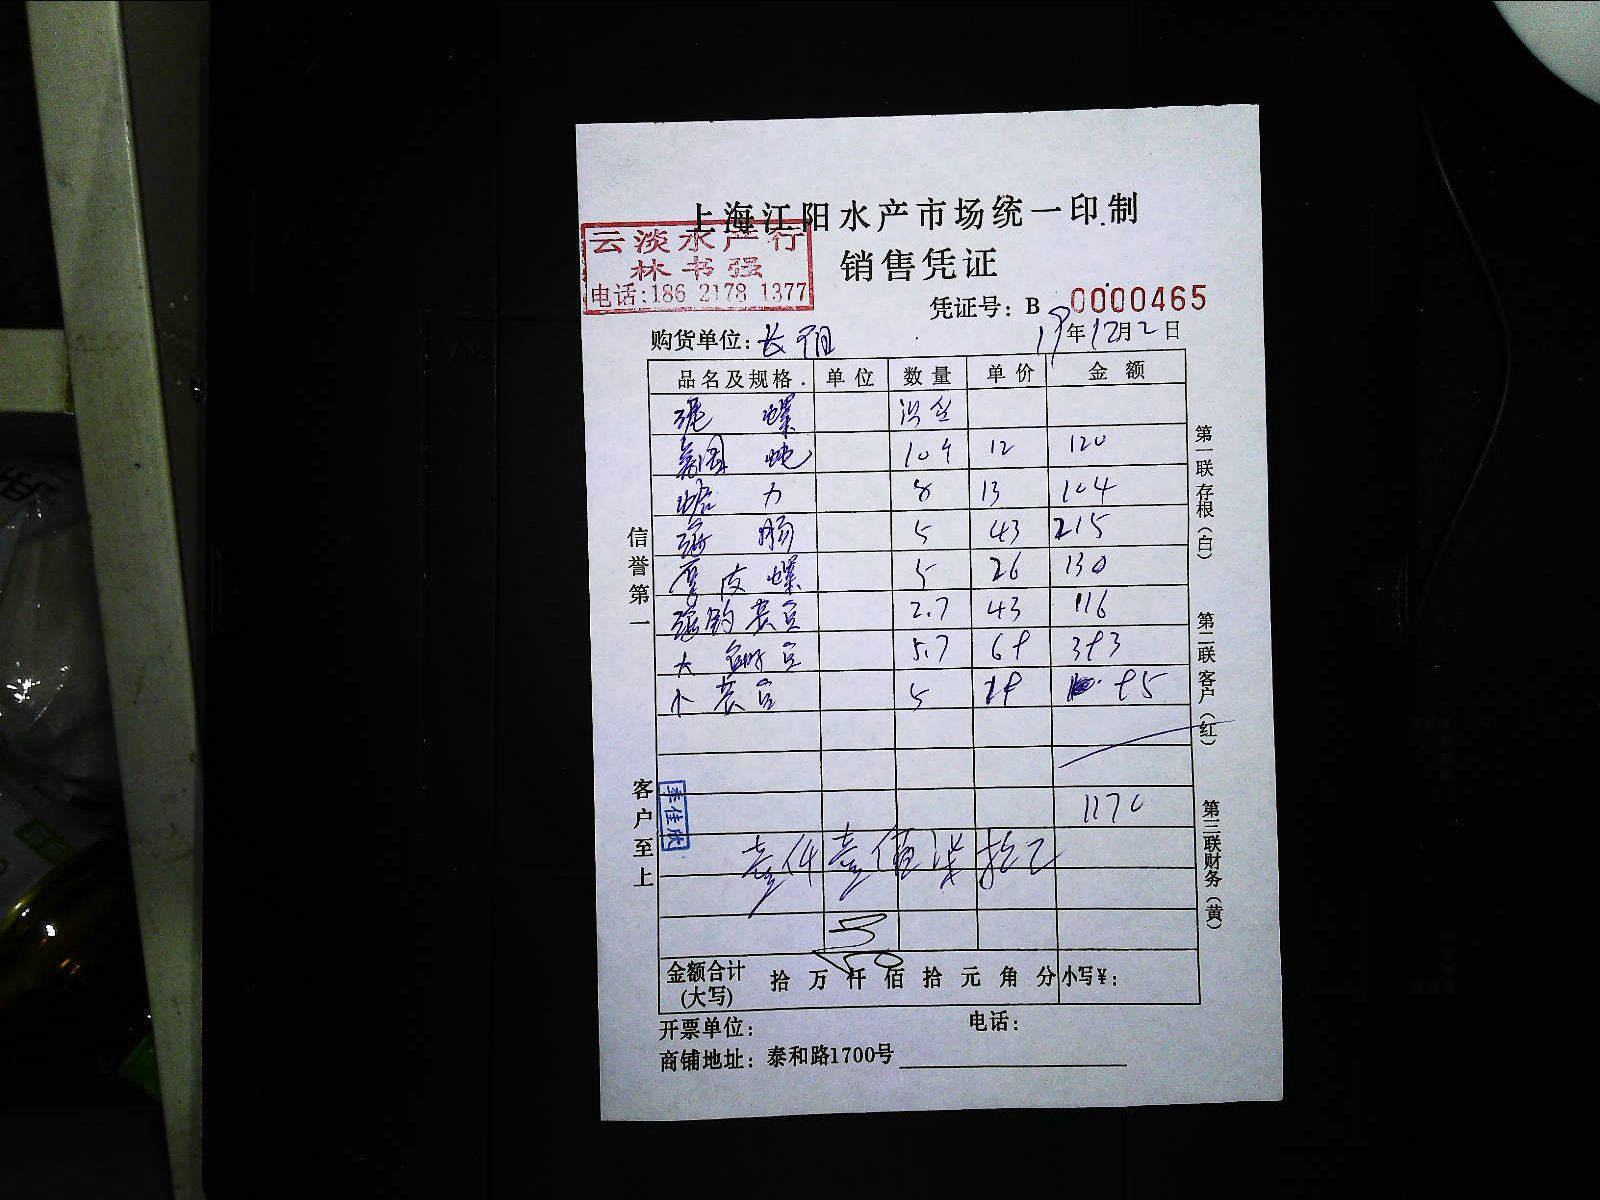 上海江阳水产市场统一印制
云淡水产行
林书强
电话:186 2178 1377
销售凭证
凭证号: B 0000465
购货单位: 长阳 19年12月2日
品名及规格. 单位 数量 单价 金额
泥螺
10 12 120
8 13 104
海肠 5 43 215
厚皮螺 5 26 130
2.7 43 116
大 5.7 69 393
小 5 19 95
1170
壹仟壹佰柒拾
金额合计(大写) 拾 万 仟 佰 拾 元 角 分 小写¥:
开票单位: 电话:
商铺地址: 泰和路1700号
信誉第一
客户至上
李佳欣
第一联存根(白)
第二联客户(红)
第三联财务(黄)